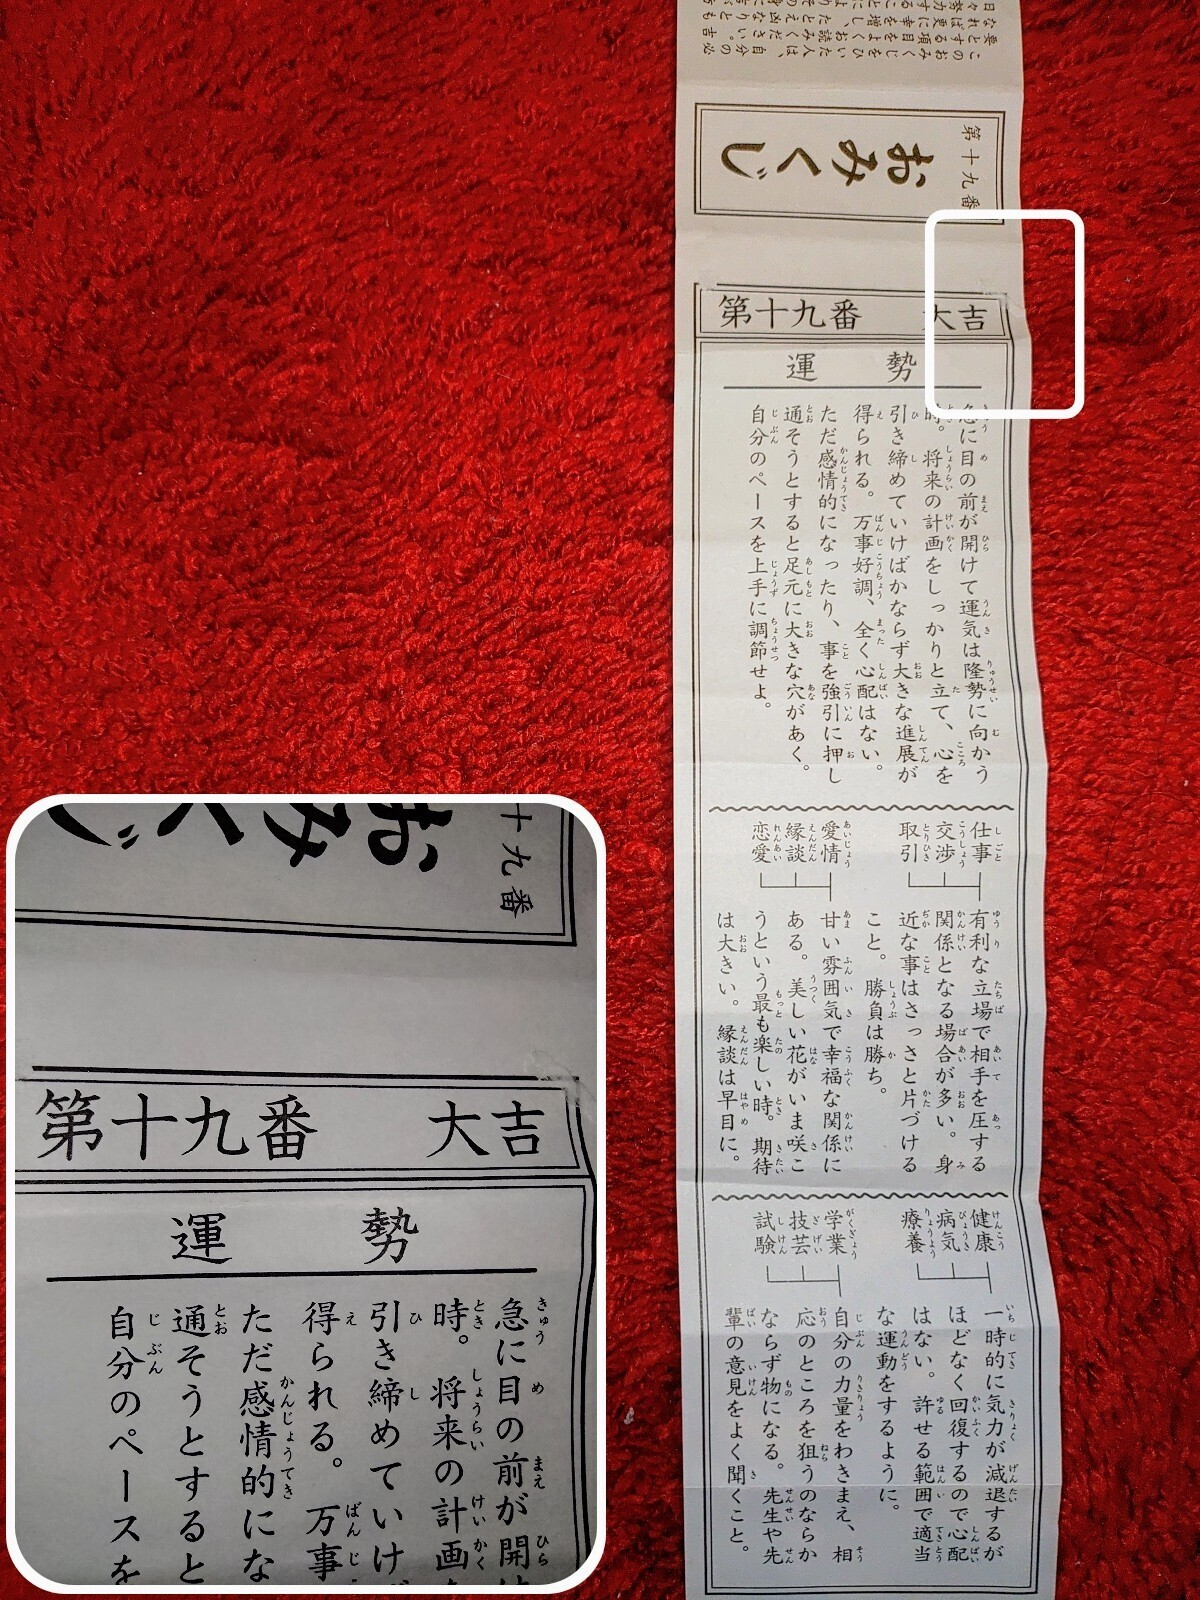 第十九番
おみくじ
第十九番 大吉
運勢
急に目の前が開けて運気は隆勢に向かう
時。将来の計画をしっかりと立て、心を
引き締めていけばかならず大きな進展が
得られる。万事好調、全く心配はない。
ただ感情的になったり、事を強引に押し
通そうとすると足元に大きな穴があく。
自分のペースを上手に調節せよ。
仕事
交渉
取引
有利な立場で相手を圧する
関係となる場合が多い。身
近な事はさっさと片づける
こと。勝負は勝ち。
愛情
縁談
恋愛
甘い雰囲気で幸福な関係に
ある。美しい花がいま咲こ
うという最も楽しい時。期待
は大きい。縁談は早目に。
健康
病気
療養
一時的に気力が減退するが
ほどなく回復するので心配
はない。許せる範囲で適当
な運動をするように。
学業
技芸
試験
自分の力量をわきまえ、相
応のところを狙うのならか
ならず物になる。先生や先
輩の意見をよく聞くこと。
十九番
おみくじ
第十九番 大吉
運勢
急に目の前が開
時。将来の計画
引き締めていけ
得られる。万事
ただ感情的にな
通そうとすると
自分のペースを